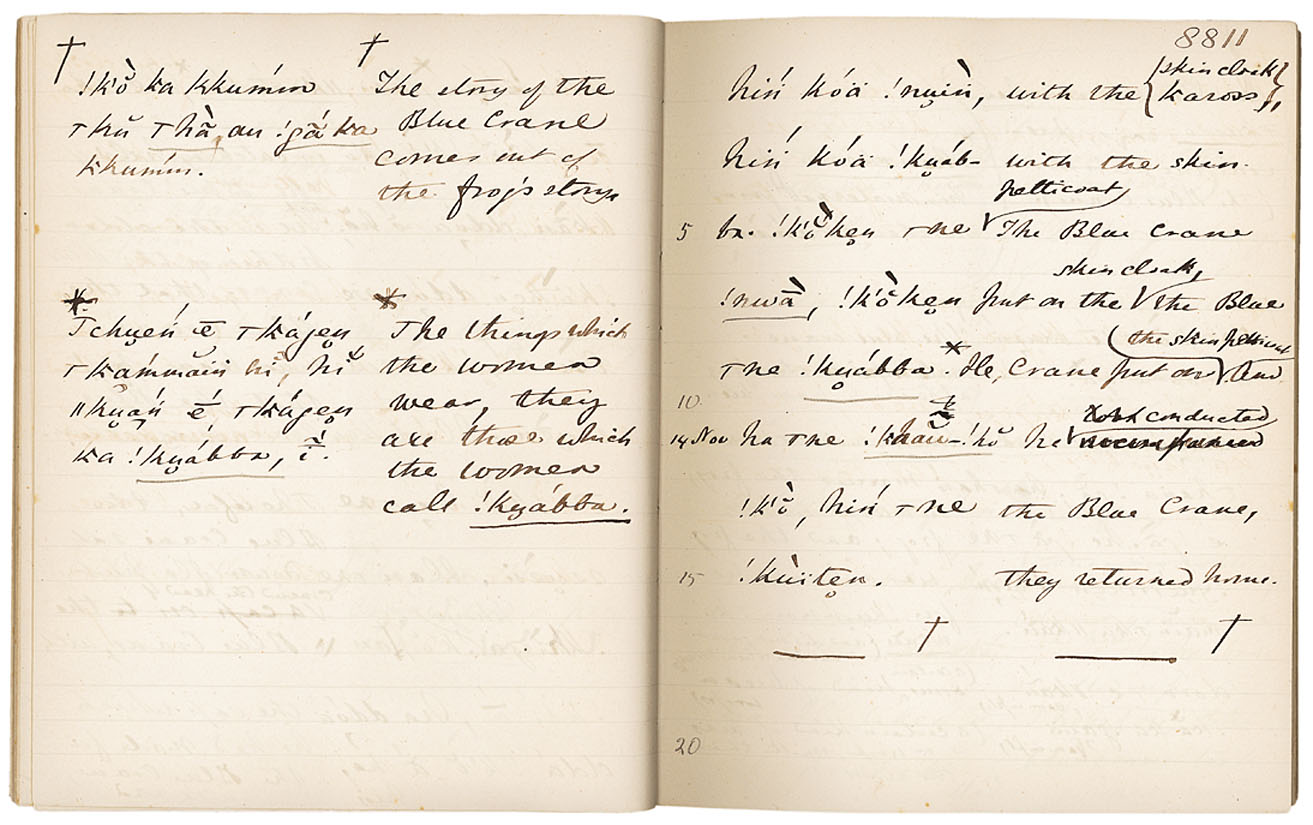 †
!kò̆ ka kkumḿm
ꞇkŭ ꞇhā̀, au !gā́ ka
kkumḿm.
†
The story of the
Blue Crane
comes out of
the frog's story
*
Tchu̥eń ē ꞇkáge̥n
ꞇkámmăin hĭ, hĭ
ǁku̥ań é̄ ꞇkáge̥n
ka !ku̥ábba, ī̀.
*
The things which
the women
wear, they
are those which
the women
call !ku̥ábba.
8811
hiń kóä !nu̥iǹ, with the {skin cloak
kaross},
hiń kóä !ku̥áb- with the skin
petticoat
5 ba. !kò̆ke̥n ꞇne The Blue Crane
skin cloak,
!nuā̀, !kò̆ke̥n put on the the Blue
(the skin petticoat
ꞇne !ku̥ábba.* He, Crane put on And
10
14 Nov ha ꞇne !khău-!kŏ he took conducted
!kò̆, hiń ꞇne the Blue Crane,
15 !kùïte̥n. they returned home.
† †
20